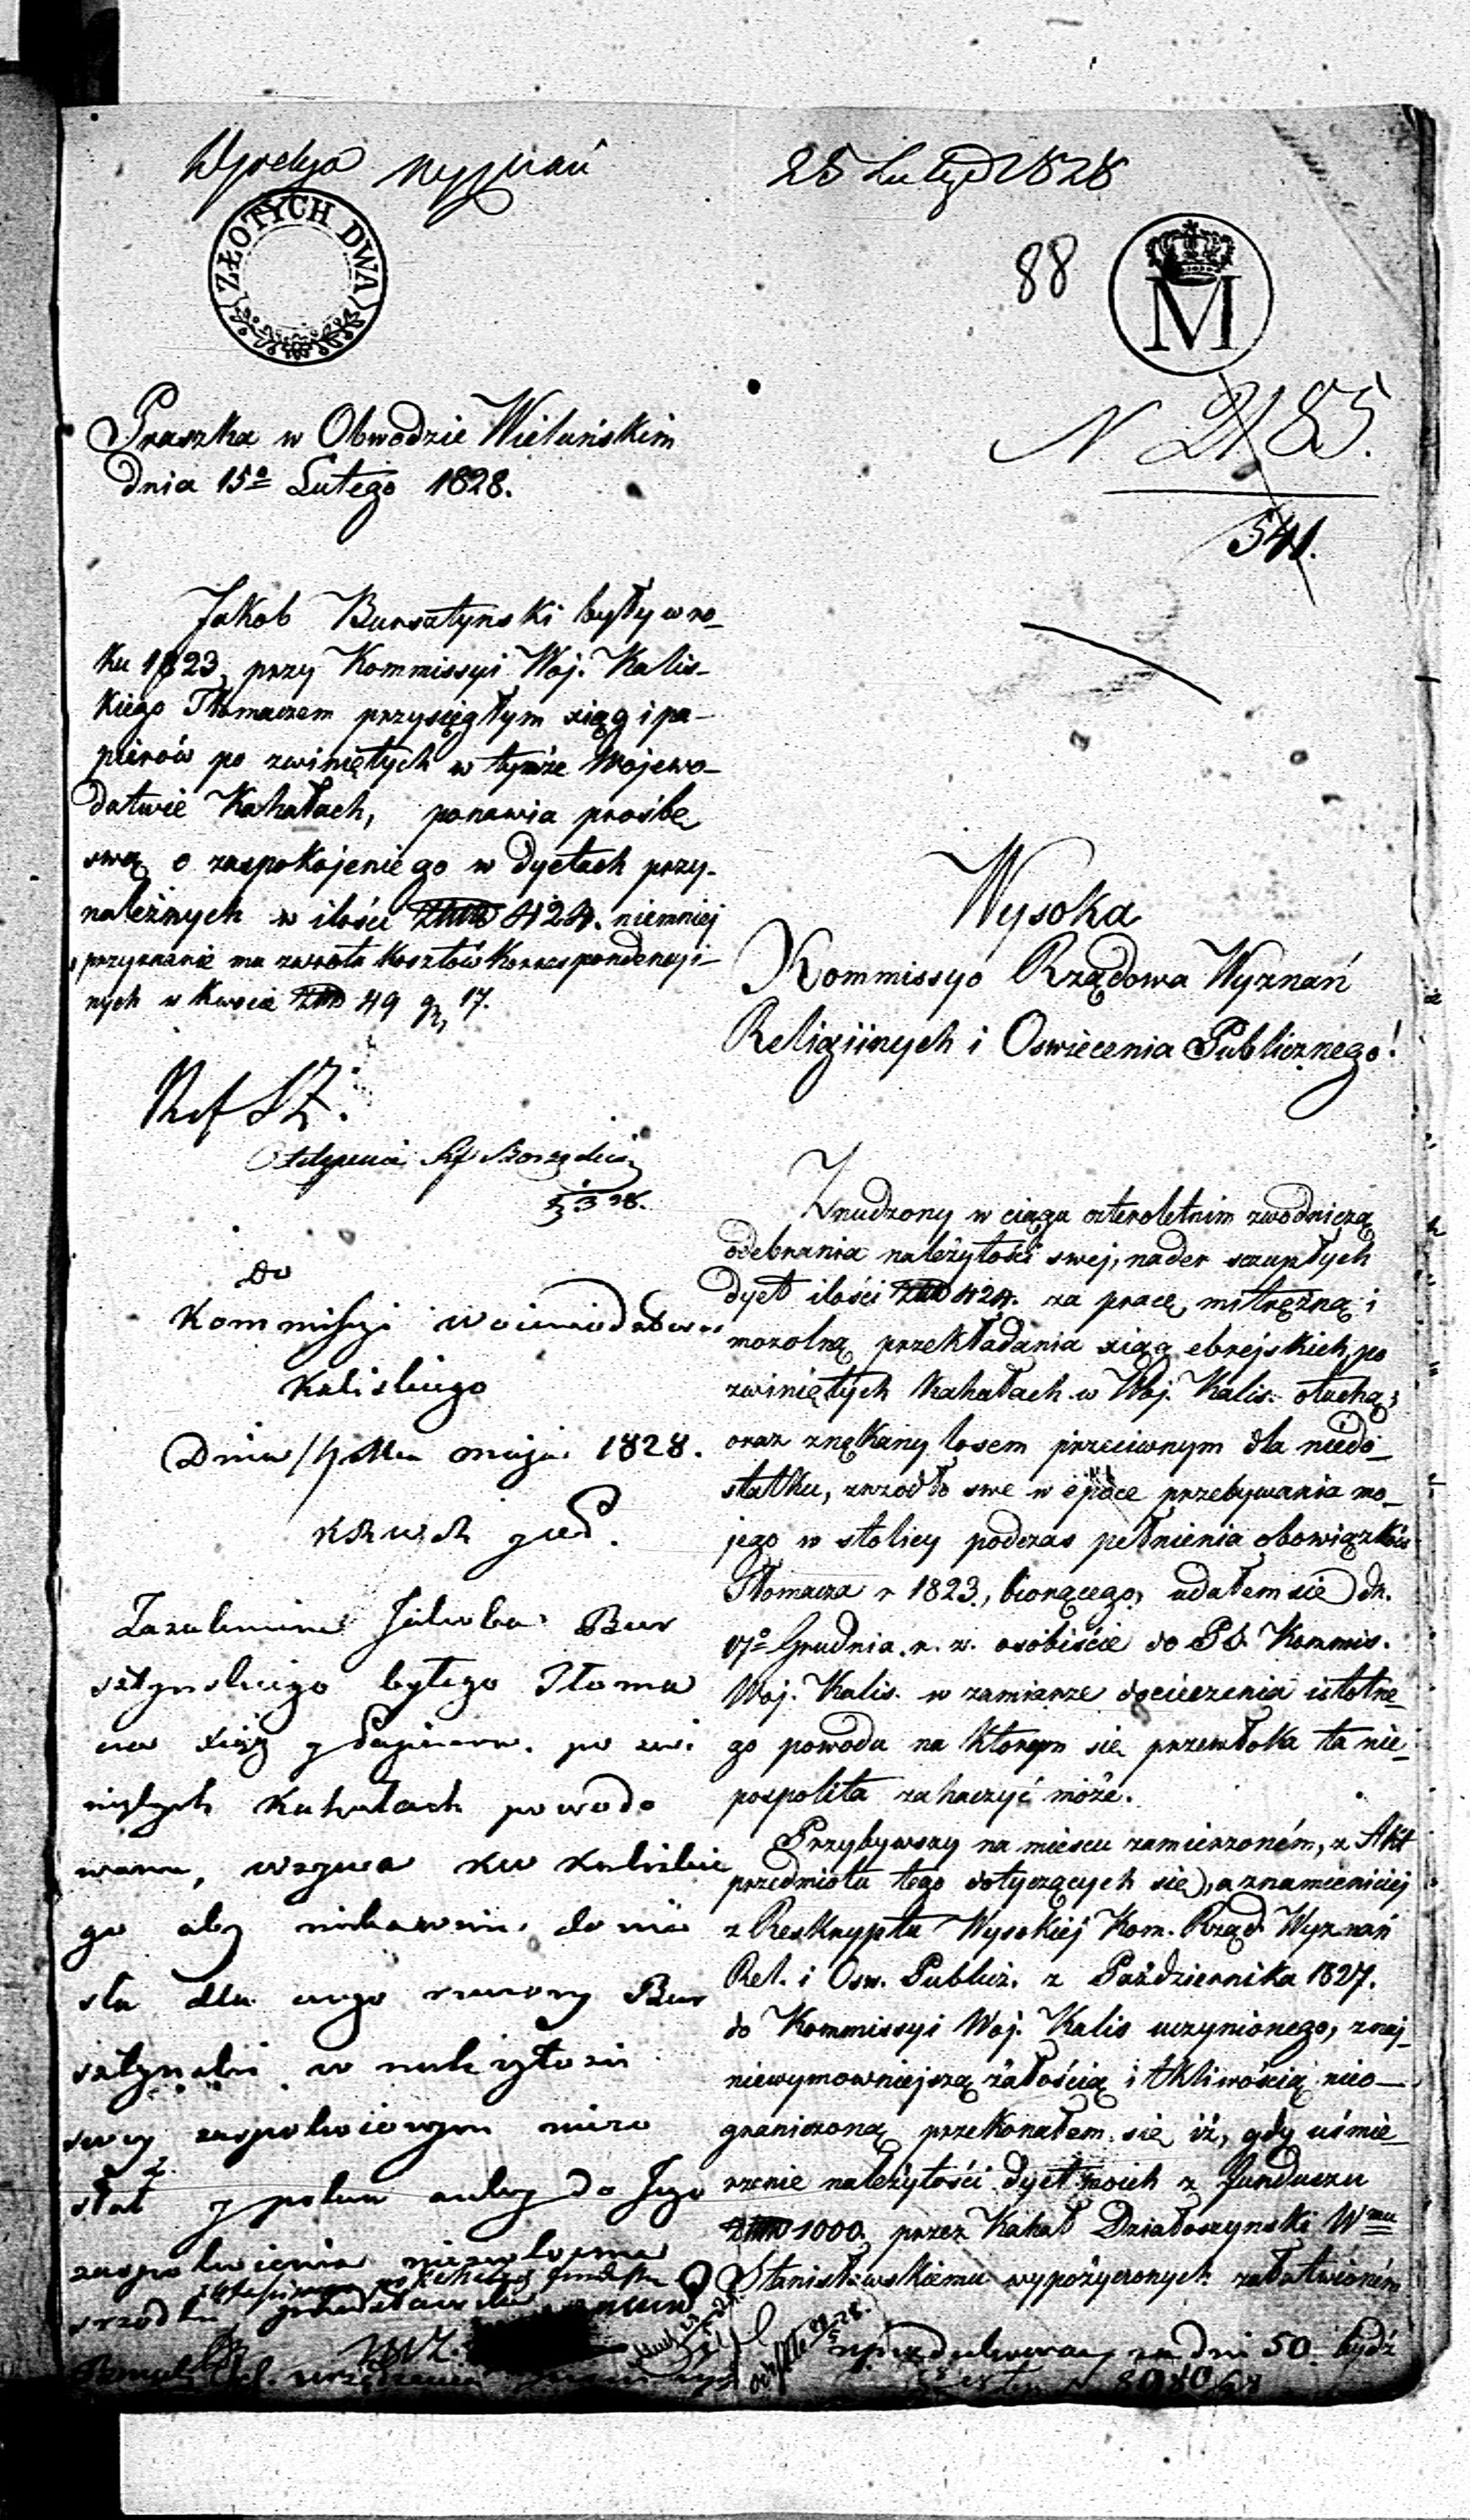 25 Lutego 1828
ZŁOTYCH DWA
88
M
N 2185.
541.
Praszka w Obwodzie Wieluńskim
dnia 15º Lutego 1828.
Jakob Bursztynski były w ro-
ku 1823, przy Kommissyi Woj. Kalis-
kiego Tłomaczem przysięgłym xiąg i pa-
pierów po zwiniętych w tymże Wojewo-
dztwie Kahałach, ponawia prośbę
swą o zaspokojenie go w dyetach przy-
należnych w ilości 424. niemniej
przyznanie mu zwrotu kosztów korrespondencyi-
nych w kwocie 49 gr, 17.
Ref
do
Kommissyi Woiewództwa
Kaliskiego
Dnia maja 1828.
Zażalenie Jakuba Bur
sztynskiego byłego Tłoma
cza xiąg y Papierów po zwi
niętych Kahałach powodo
wana, wzywa KW Kaliskie
go aby niebawnie donio
sła dla czego rzeczony Bur
sztynski w należytości
swey zaspokoionym niezo
stał y polem do Jego
zaspokoienia
srzodki
Wysoka
Kommissyo Rządowa Wyznań
Religiinych i Oswiecenia Publicznego!
Znudzony w ciągu czteroletnim zwodniczą
odebrania należytości swej, nader szczupłych
dyet ilości 424. za pracę mitrężną i
mozolną przekładania xiąg ebrejskich po
zwiniętych Kahałach w Woj. Kalis. otuchą;
oraz znękany losem przeciwnym dla niedo-
statku, zrzodło swe w epoce przebywania mo-
jego w stolicy podczas pełnienia obowiązków
Tłomacza r 1823, biorącego, udałem się dn.
17º Grudnia r. z. osobiście do Kommis.
Woj. Kalis. w zamiarze docieczenia istotne-
go powodu na którym się przewłoka ta nie-
pospolita zahaczyć może.
Przybywszy na miescu zamierzoném, z Akt
przedmiotu tego dotyczących się, a znamieniciej
z Reskryptu Wysokiéj Kom. Rząd. Wyznań
Rel. i Osw. Publicz. z Października 1827.
do Kommissyi Woj. Kalis uczynionego, z naj-
niewymowniejszą żałością i tkliwością nieo-
graniczoną przekonałem się iż, gdy uśmie-
rzenie należytości dyet moich z funduszu
1000. przez Kahał Działoszynski Wmu
Stanisławskiemu wypożyczonych załatwioném
za dni 50 bydź